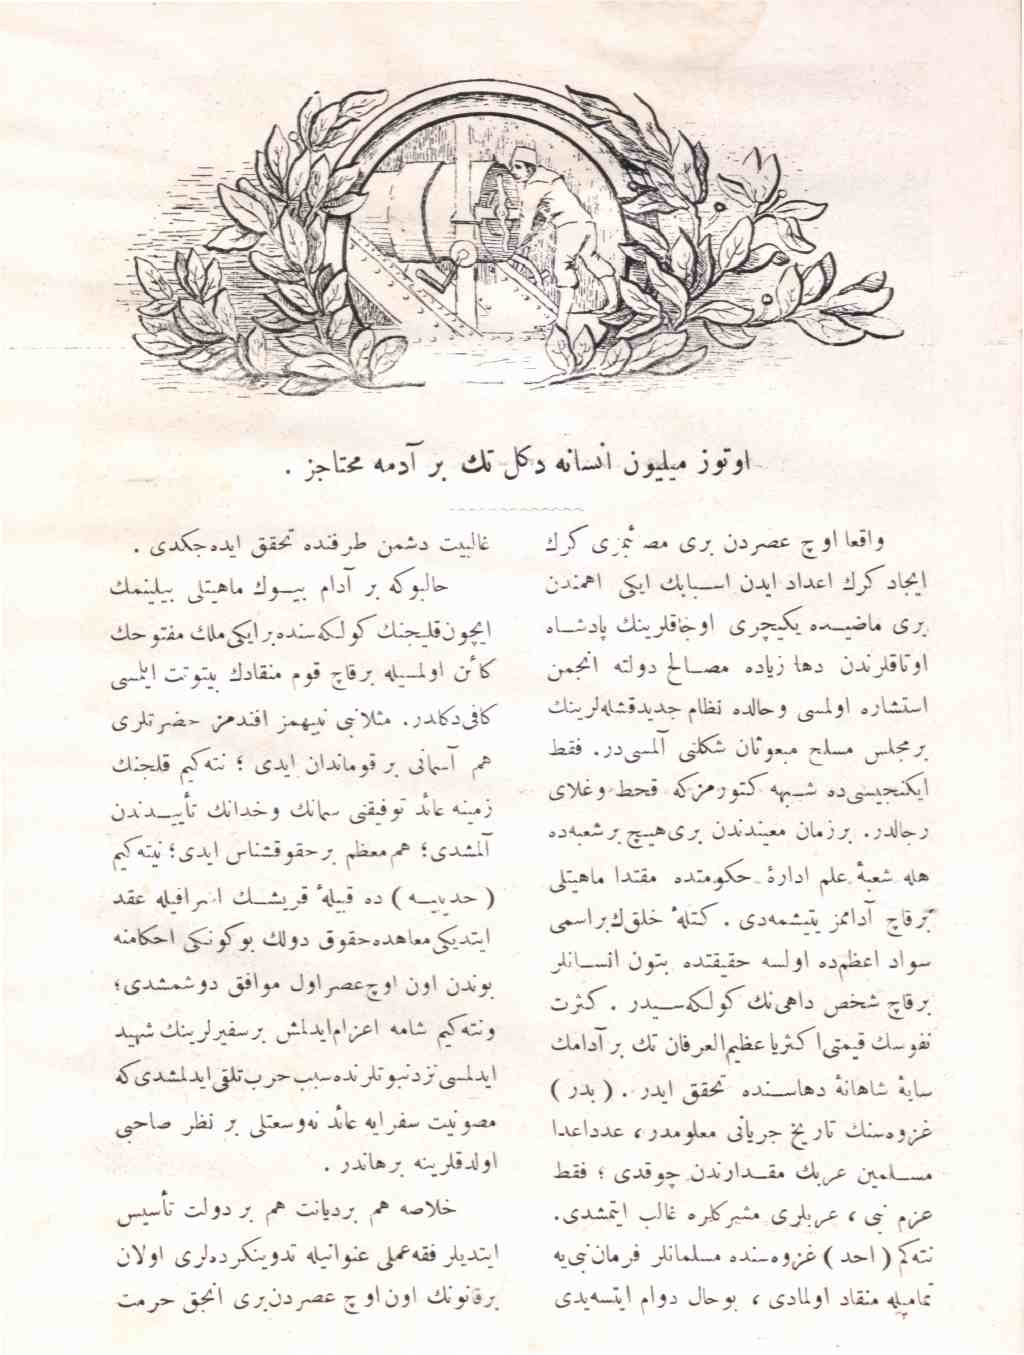 اوتوز میلیون انسانه دکل تك بر آدمه محتاجز .
واقعا اوچ عصردن بری مصائبمزی کرك
ایجاد کرك اعداد ایدن اسبابك ایکی اهمندن
بری ماضیده یکیچری اوجاقلرینك پادشاه
اوتاقلرندن دها زیاده مصالح دولته انجمن
استشاره اولمسی وحالده نظام جدیدقشله لرینك
بر مجلس مسلح مبعوثان شکلنی آلمسی در. فقط
ایکنجیسی ده شبهه کتورمزکه قحط وغلای
رجالدر. برزمان معیندندن بری هیچ بر شعبه ده
هله شعبهٔ علم ادارهٔ حکومتده مقتدا ماهیتلی
برقاچ آدامز یتیشمه دی . کتلهٔ خلق ك بر اسمی
سواد اعظم ده اولسه حقیقتده بتون انسانلر
برقاچ شخص داهی نك کولکه سیدر . کثرت
نفوسك قیمتی اکثریا عظیم العرفان تك بر آدامك
سایهٔ شاهانهٔ دهاسنده تحقق ایدر . (بدر)
غزوه سنك تاریخ جریانی معلومدر، عدداعدا
مسلمین عربك مقدارندن چوقدی ؛ فقط
عزم نبی ، عربلری مشرکلره غالب ایتمشدی.
نته کم (احد) غزوه سنده مسلمانلر فرمان نبی یه
تمامیله منقاد اولمادی ، بوحال دوام ایتسه یدی
غالبیت دشمن طرفنده تحقق ایده جکدی .
حالبوکه بر آدام بیوك ماهیتلی بیلینمك
ایچون قلیجنك کولکه سنده بر ایکی ملك مفتوحك
کائن اولمسیله برقاچ قوم منقادك بیتوتت ایلمسی
کافی دکلدر. مثلا نبی نبیهمز افندمز حضرتلری
هم آسمانی بر قوماندان ایدی ؛ نته کیم قلجنك
زمینه عائد توفیقنی سمانك وخدانك تأییدندن
آلمشدی؛ هم معظم بر حقوقشناس ایدی؛ نیته کیم
(حدیبیه) ده قبیلهٔ قریشك اشرافیله عقد
ایتدیکی معاهده حقوق دولك بوکونکی احکامنه
بوندن اون اوچ عصر اول موافق دوشمشدی؛
ونته کیم شامه اعزام ایدلمش بر سفیرلرینك شهید
ایدلمسی نزد نبوتلرنده سبب حرب تلقی ایدلمشدی که
مصونیت سفرایه عائد نه وسعتلی بر نظر صاحبی
اولدقلرینه برهاندر .
خلاصه هم بر دیانت هم بر دولت تأسیس
ایتدیلر فقه عملی عنوانیله تدوین کرده لری اولان
برقانونك اون اوچ عصردن بری انجق حرمت